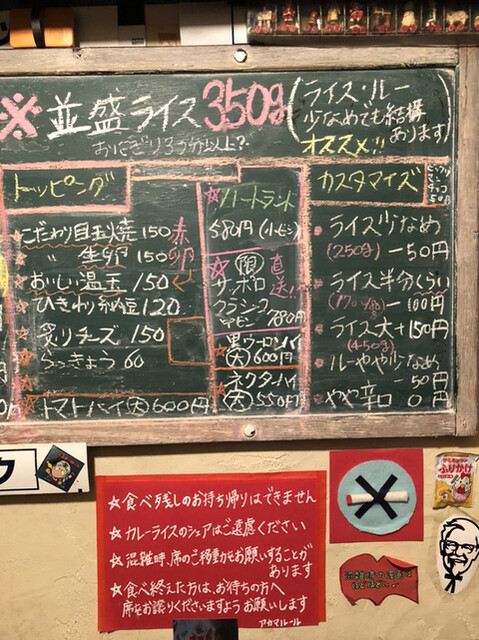 ※並盛ライス350g
(ライス・ルー
少なめでも結構
あります)
オススメ!!
おにぎり3つ分以上?
トッピング
こだわり目玉焼 150
〃 生卵 150
赤卵
おいしい温玉 150
ひきわり納豆 120
炙りチーズ 150
らっきょう 60
トマトハイ(大)600円
ハートランド
580円(小ビン)
限 直送!!
サッポロ
クラシック
中ビン 780円
黒ウーロンハイ
(大)600円
ネクターハイ
(大)550円
カスタマイズ
ライス少なめ
(250g) -50円
ライス半分くらい
-100円
ライス大+150円
(450g)
ルーやや少なめ
-50円
やや辛口 0円
☆食べ残しのお持ち帰りはできません
☆カレーライスのシェアはご遠慮ください
☆混雑時、席のご移動をお願いすることが
あります
☆食べ終えた方は、お待ちの方へ
席をお譲りくださいますようお願いします
アカマルール
ふりかけ